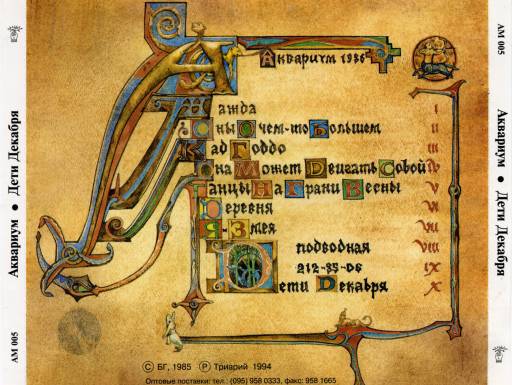 АМ 005
Аквариум ● Дети Декабря
Аквариум 1986
Жажда I
Сны О Чем-то Большем II
Кад Годдо III
Она Может Двигать Собой IV
Танцы На Грани Весны V
Деревня VI
Я-Змея VII
Подводная VIII
212-85-06 IX
Дети Декабря X
© БГ, 1985 Ⓟ Триарий 1994
Оптовые поставки: тел.: (095) 958 0333, факс: 958 1665
АМ 005
Аквариум ● Дети Декабря